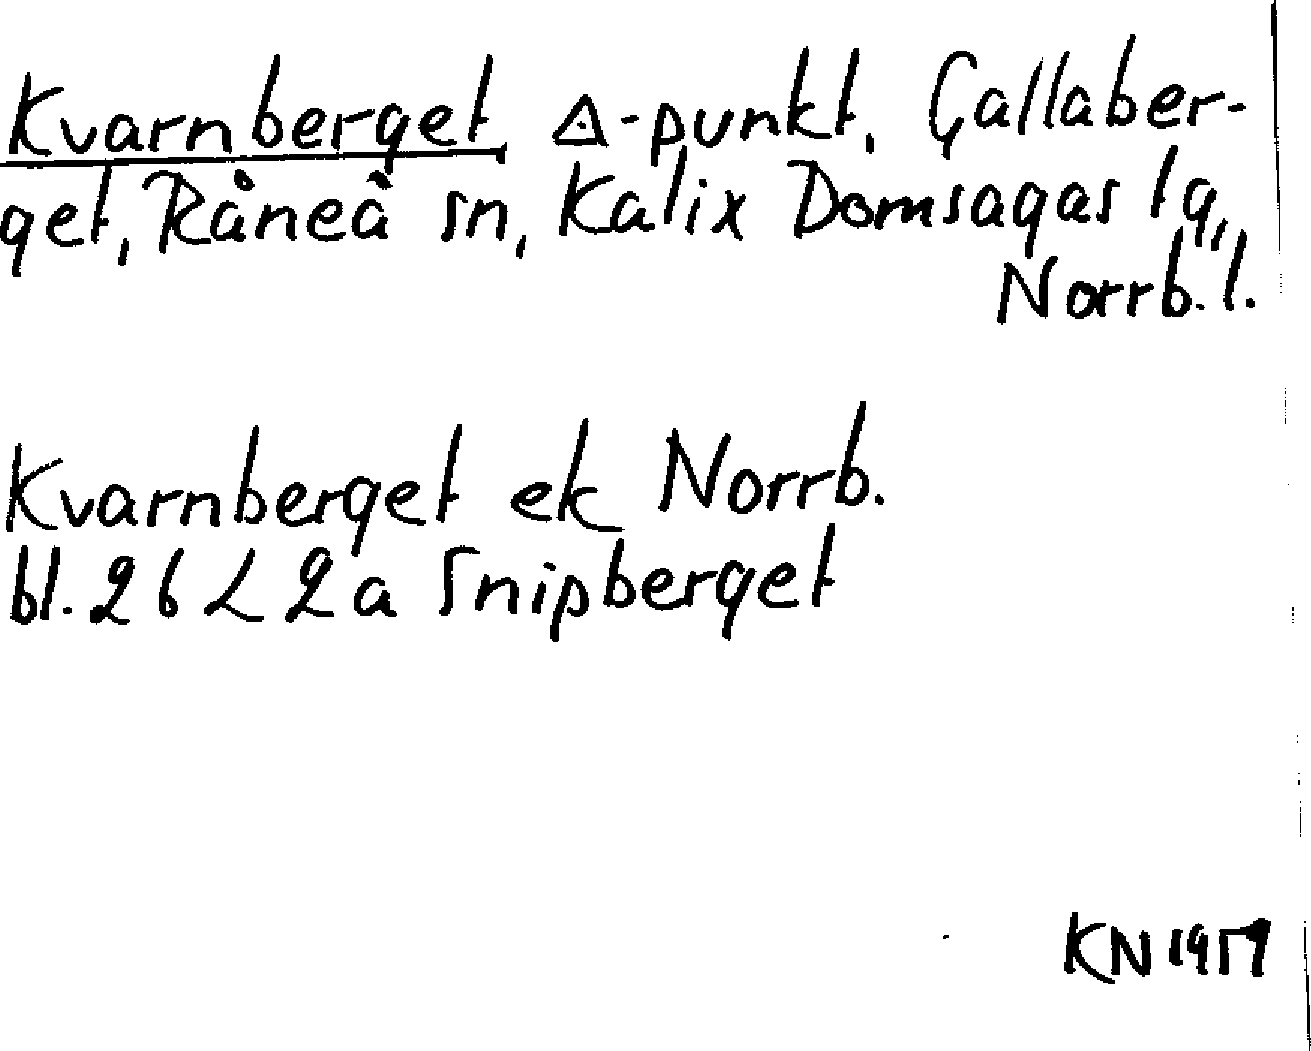 Kvarnberget, △-punkt, Gallaber-
get, Råneå sn, Kalix Domsagas lg,
Norrb. l.
Kvarnberget ek Norrb.
bl. 26 L 2a Snipberget
KN 1959